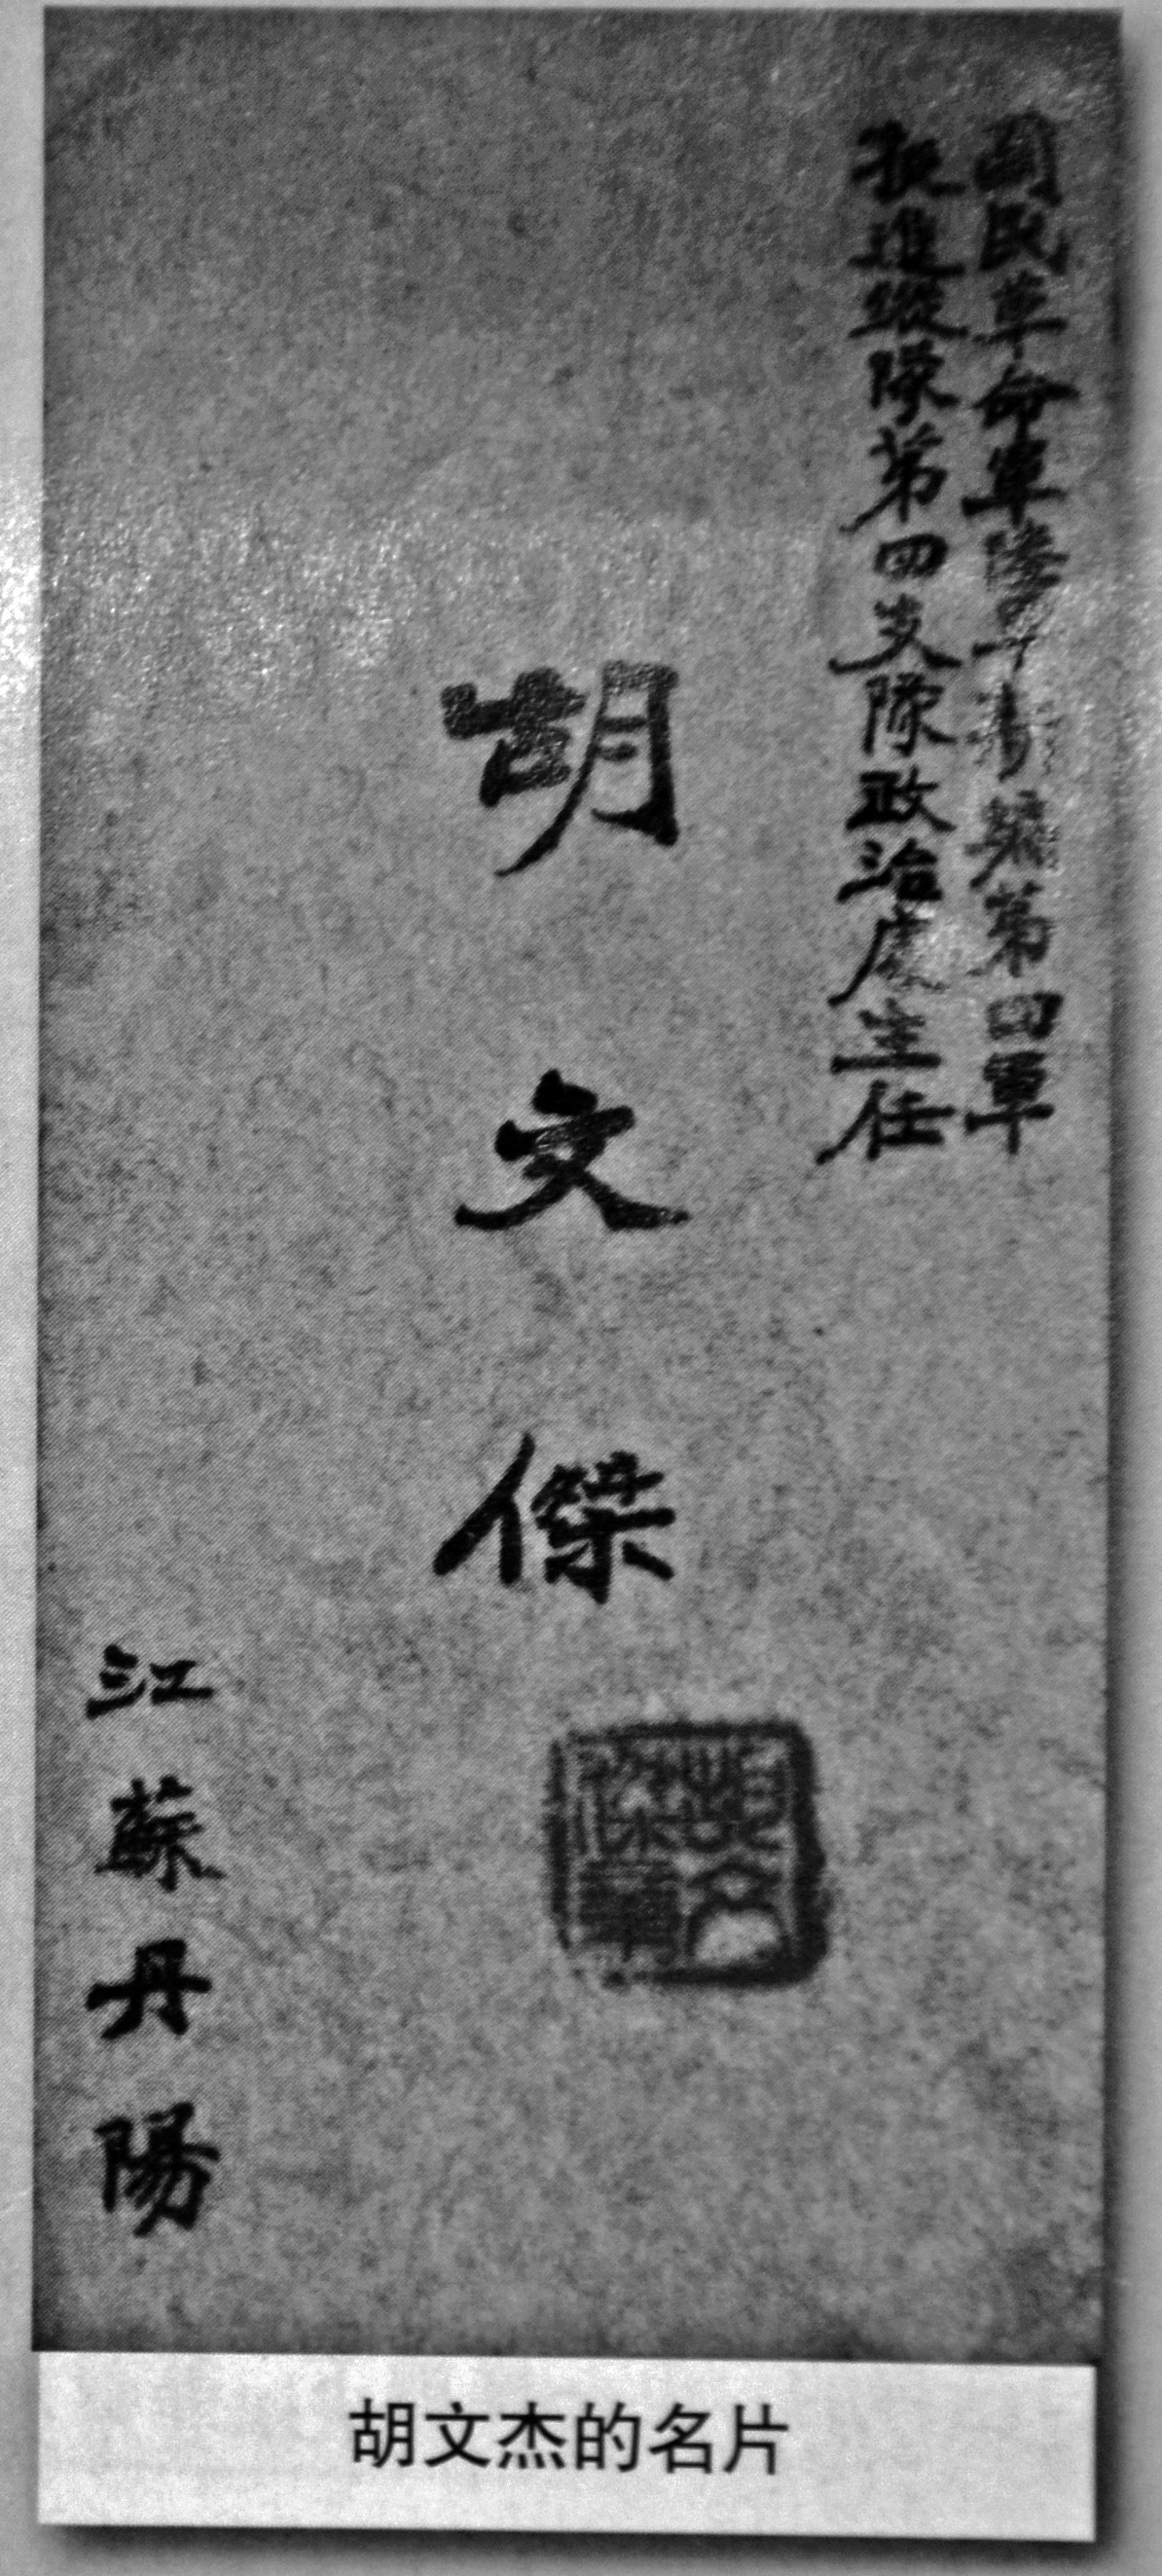 國民革命軍陸軍新編第四軍
挺進縱隊第四支隊政治處主任
胡文傑
胡文
傑章
江蘇丹陽
胡文杰的名片